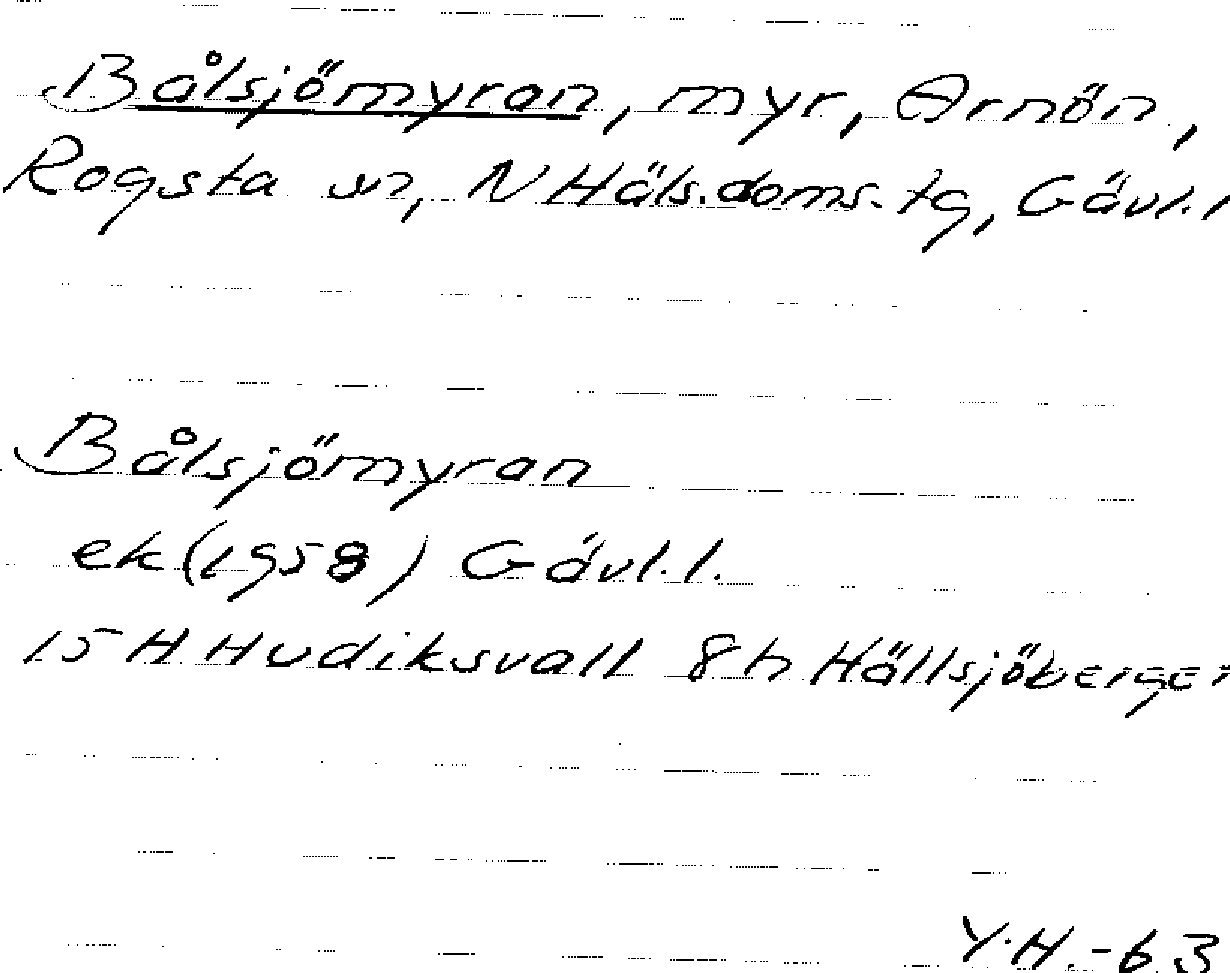 Bålsjömyran, myr, Arnön,
Rogsta sn, N Häls. doms. tg, Gävl.l
Bålsjömyran
ek (1958) Gävl.l.
15 H Hudiksvall 8h Hällsjöberget
Y.H.-63